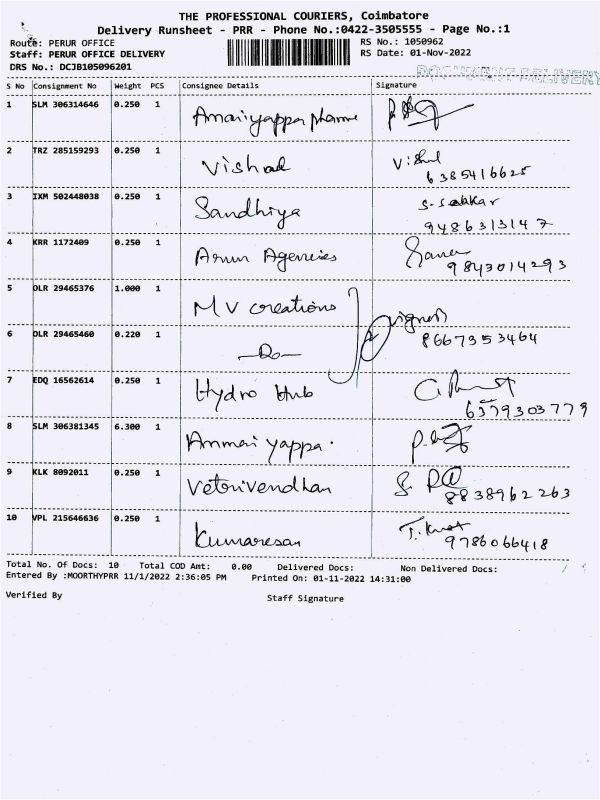 THE PROFESSIONAL COURIERS, Coimbatore
Delivery Runsheet - PRR - Phone No.:0422-3505555 - Page No.:1
Route: PERUR OFFICE RS No.: 1050962
Staff: PERUR OFFICE DELIVERY RS Date: 01-Nov-2022
DRS No.: DCJB105096201
S No Consignment No Weight PCS Consignee Details Signature
1 SLM 306314646 0.250 1 Amaiyappa pharme
2 TRZ 285159293 0.250 1 Vishal
6385416625
3 IXM 502448038 0.250 1 Sandhiya
9486313147
4 KRR 1172409 0.250 1 Arun Agencies
9843014293
5 DLR 29465376 1.000 1 MV creations
6 DLR 29465460 0.220 1 —Do— 8667353464
7 EDQ 16562614 0.250 1 Hydro Hub
6379303779
8 SLM 306381345 6.300 1 Ammai yappa.
9 KLK 8092011 0.250 1 Vetrivendhan
8838962263
10 VPL 215646636 0.250 1 Kumaresan
9786066418
Total No. Of Docs: 10 Total COD Amt: 0.00 Delivered Docs: Non Delivered Docs:
Entered By :MOORTHYPRR 11/1/2022 2:36:05 PM Printed On: 01-11-2022 14:31:00
Verified By Staff Signature